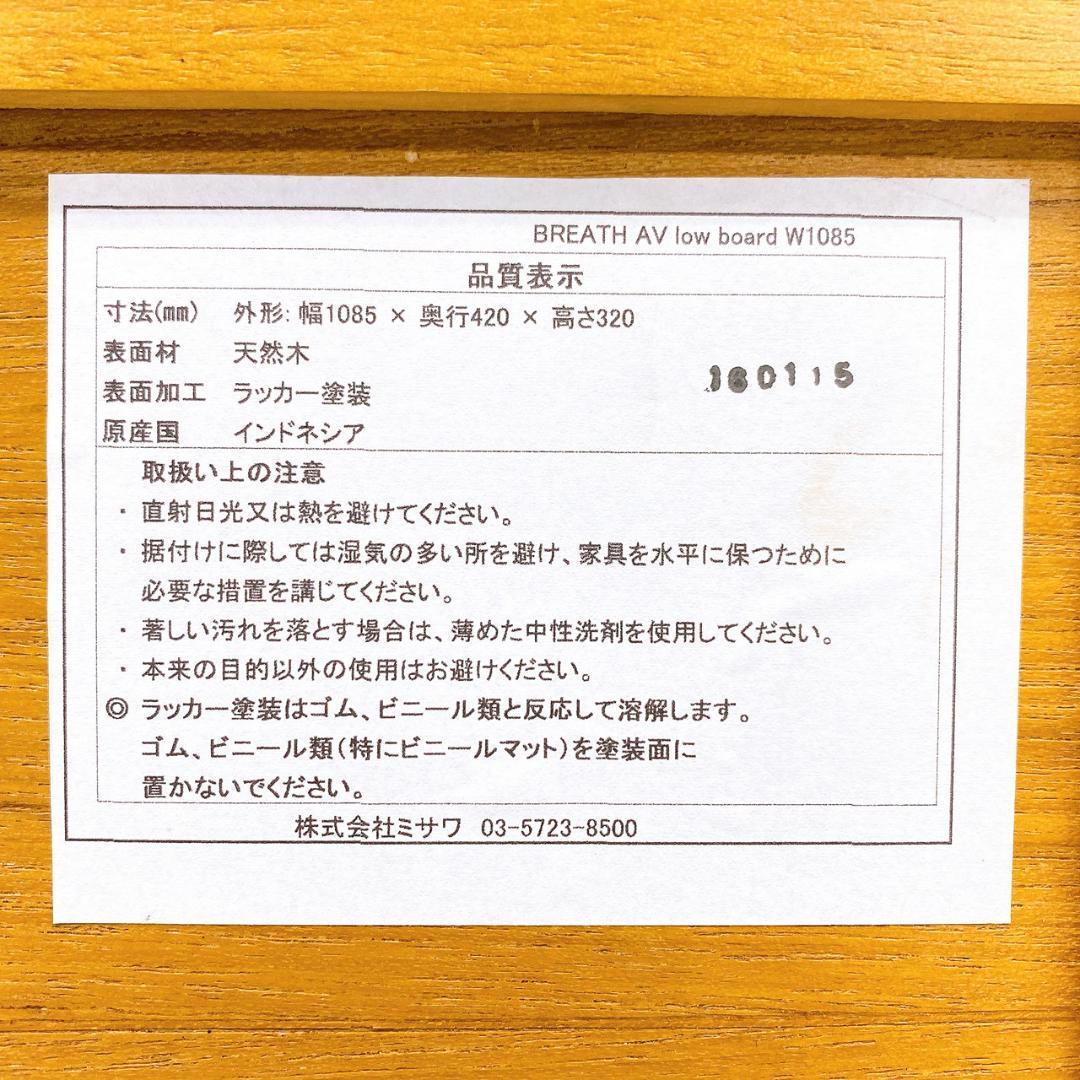 BREATH AV low board W1085
品質表示
寸法(mm) 外形: 幅1085 × 奥行420 × 高さ320
表面材 天然木
160115
表面加工 ラッカー塗装
原産国 インドネシア
取扱い上の注意
・ 直射日光又は熱を避けてください。
・ 据付けに際しては湿気の多い所を避け、家具を水平に保つために
必要な措置を講じてください。
・ 著しい汚れを落とす場合は、薄めた中性洗剤を使用してください。
・ 本来の目的以外の使用はお避けください。
◎ ラッカー塗装はゴム、ビニール類と反応して溶解します。
ゴム、ビニール類(特にビニールマット)を塗装面に
置かないでください。
株式会社ミサワ 03-5723-8500